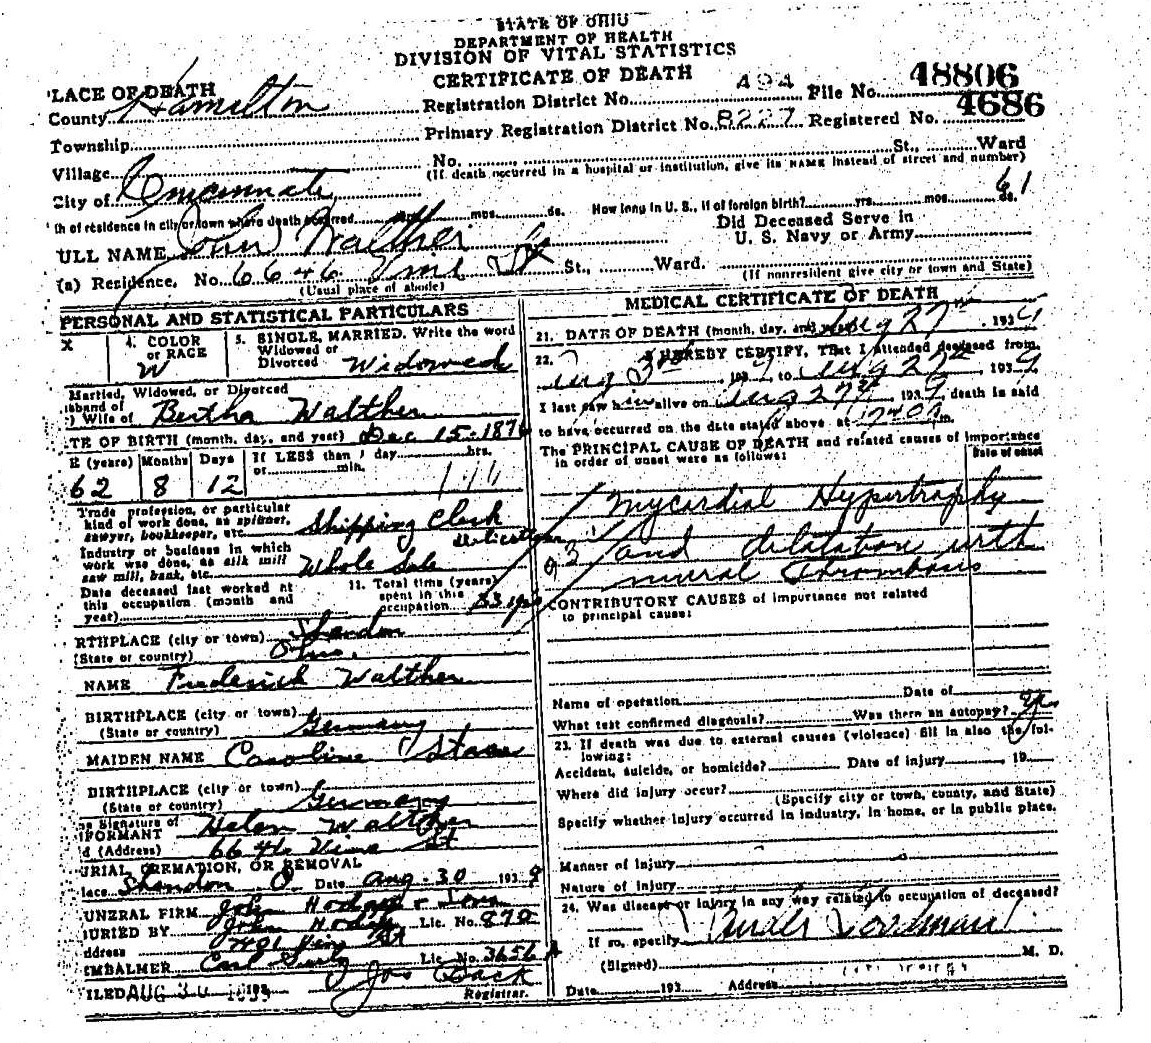 STATE OF OHIO
DEPARTMENT OF HEALTH
DIVISION OF VITAL STATISTICS
CERTIFICATE OF DEATH
LACE OF DEATH
County Hamilton Registration District No. 494 File No. 48806
Township Primary Registration District No. 8227 Registered No. 4686
Village No. St., Ward
(If death occurred in a hospital or institution, give its NAME instead of street and number)
City of Cincinnati 61
th of residence in city or town where death occurred mos. ds. How long in U. S., if of foreign birth? yrs. mos. ds.
ULL NAME John Walther
Did Deceased Serve in
U. S. Navy or Army
(a) Residence, No. 6646 St., Ward.
(Usual place of abode) (If nonresident give city or town and State)
PERSONAL AND STATISTICAL PARTICULARS
X
4. COLOR or RACE W
5. SINGLE, MARRIED, Write the word
Widowed or
Divorced Widowed
Married, Widowed, or Divorced
sband of
) Wife of Bertha Walther
TE OF BIRTH (month, day, and year) Dec 15-1876
E (years) Months Days If LESS than 1 day hrs.
or min.
62 8 12
Trade profession, or particular
kind of work done, as spinner,
sawyer, bookkeeper, etc. Shipping Clerk
Industry or business in which
work was done, as silk mill
saw mill, bank, etc. Whole Sale
Date deceased last worked at
this occupation (month and
year)
11. Total time (years)
spent in this
occupation 33 yrs
RTHPLACE (city or town) Shandon
(State or country) Ohio.
NAME Frederick Walther
BIRTHPLACE (city or town)
(State or country) Germany
MAIDEN NAME Caroline
BIRTHPLACE (city or town)
(State or country) Germany
Signature of
FORMANT Helen Walther
d (Address) 6646 Vine St
URIAL, CREMATION, OR REMOVAL
lace Shandon O Date Aug. 30 1939
UNERAL FIRM John Hodapp & Sons
BURIED BY John Hodapp Lic. No. 870
ddress 7401 Vine St
EMBALMER Carl Lic. No. 3656 A
FILED AUG 30 1939 193 Jos Registrar.
MEDICAL CERTIFICATE OF DEATH
21. DATE OF DEATH (month, day, and year) Aug 27 1939
22. I HEREBY CERTIFY, That I attended deceased from
Aug 3rd 1939 to Aug 27th 1939
I last saw him alive on Aug 27th 1939, death is said
to have occurred on the date stated above at m.
The PRINCIPAL CAUSE OF DEATH and related causes of importance
in order of onset were as follows: Date of onset
Mycardial Hypertrophy
and dilatation with
mural thrombosis
CONTRIBUTORY CAUSES of importance not related
to principal cause:
Name of operation Date of
What test confirmed diagnosis? Was there an autopsy? yes
23. If death was due to external causes (violence) fill in also the fol-
lowing:
Accident, suicide, or homicide? Date of injury 19
Where did injury occur?
(Specify city or town, county, and State)
Specify whether injury occurred in industry, in home, or in public place.
Manner of injury
Nature of injury
24. Was disease or injury in any way related to occupation of deceased?
If so, specify
(Signed) M. D.
Date 193 Address